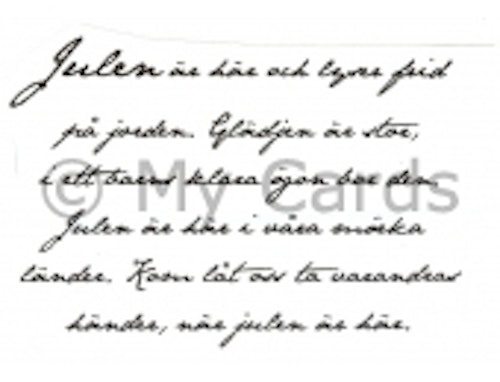 Julen är här och lyser frid
på jorden. Glädjen är stor,
i ett barns klara ögon bor den.
Julen är här i våra mörka
länder. Kom låt oss ta varandras
händer, när julen är här.
© My Cards